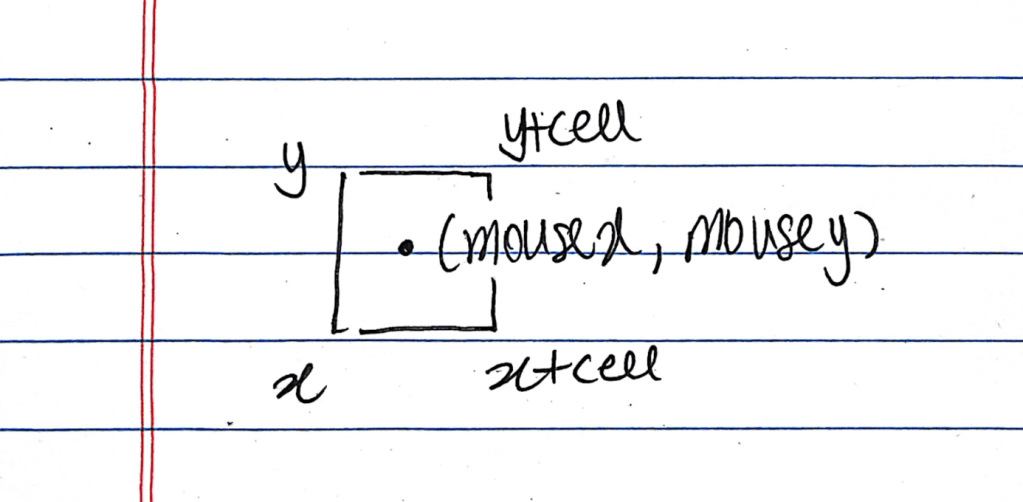 y+cell
y
(mousex, mousey)
x
x+cell